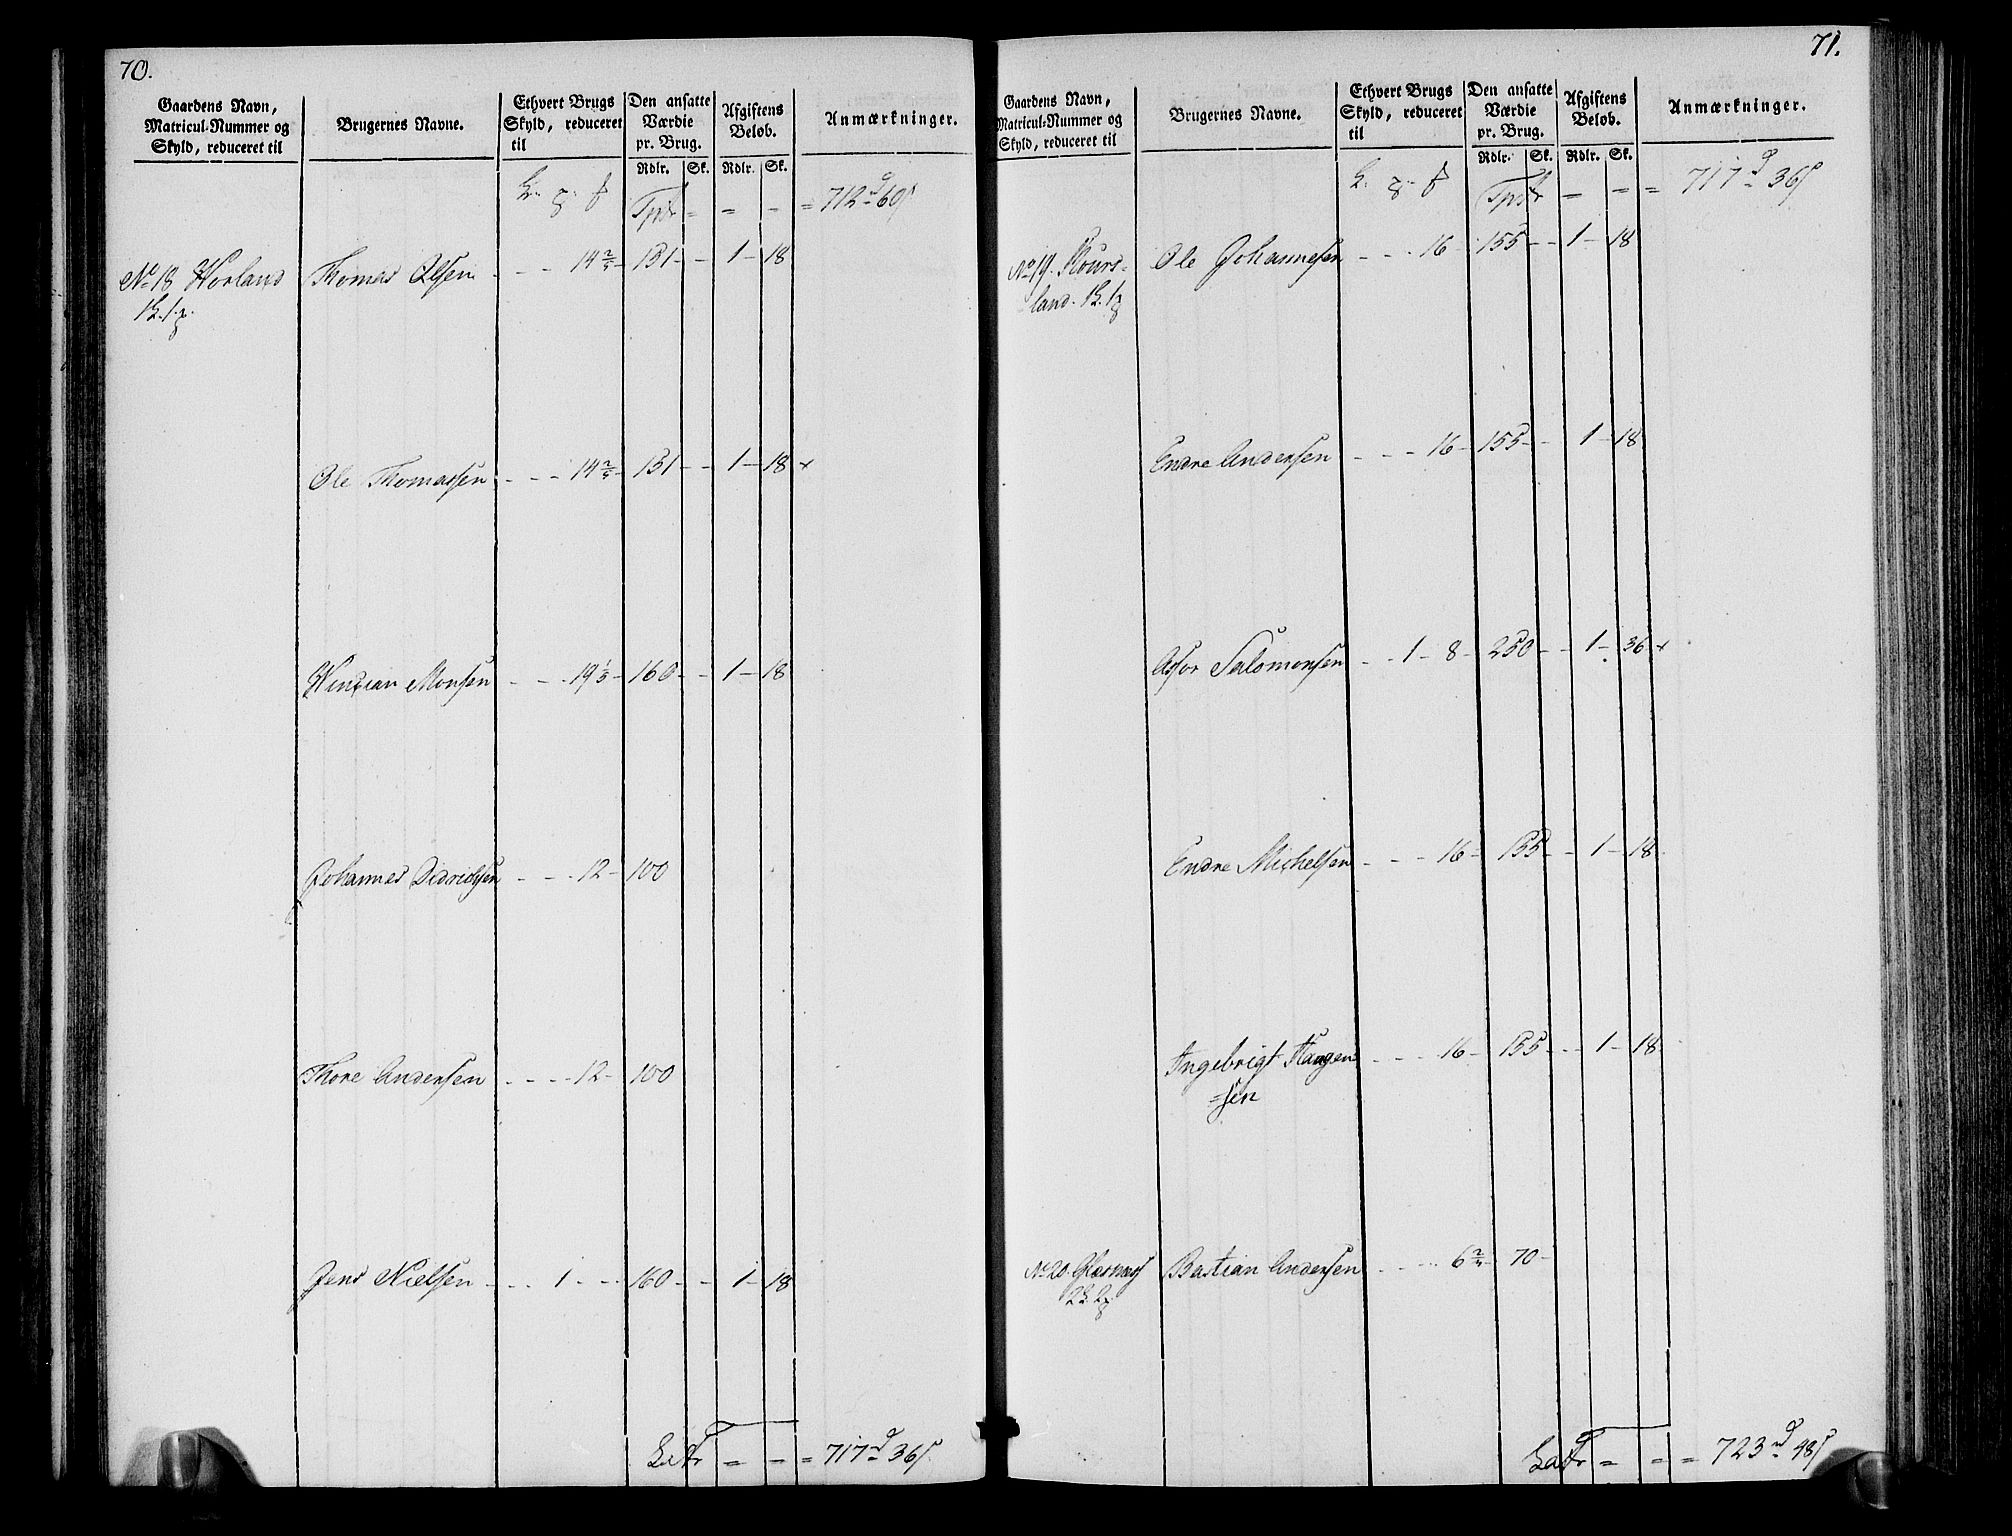 70.
Gaardens Navn,
Matricul-Nummer og
Skyld, reduceret til
Brugernes Navne.
Ethvert Brugs
Skyld, reduceret
til
Den ansatte
Værdie
pr. Brug.
Afgiftens
Beløb.
Anmærkninger.
Rdlr. Sk. Rdlr. Sk.
Tpr = = - = 712 60
No 18 Horland Thomas Olsen - - - 14 2/5 - 131 - - 1 - 18
1 1
Ole Thomassen - - - 14 2/5 - 131 - - 1 - 18 +
Monsen - - - 19 1/5 - 160 - - 1 - 18
Johannes Didrichsen - - - 12 - 100
Thore Andersen - - - - 12 - 100
Jens Nielsen - - - 1 - - - 160 - - 1 - 18
Latr = = = 717 36
71.
Gaardens Navn,
Matricul-Nummer og
Skyld, reduceret til
Brugernes Navne.
Ethvert Brugs
Skyld, reduceret
til
Den ansatte
Værdie
pr. Brug.
Afgiftens
Beløb.
Anmærkninger.
Rdlr. Sk. Rdlr. Sk.
Tpr = = = 717 36
No 19. Ole Johannesen - - - 16 - 155 - - 1 - 18
land. 1 1
Endre Andersen - - - 16 - 155 - - 1 - 18
Salomonsen - - 1 - 8 - 250 - - 1 - 36 +
Endre Michelsen - - - 16 - 155 - - 1 - 18
Ingebrigt Haagen - - - 16 - 155 - - 1 - 18
=sen
No 20. Bastian Andersen - - - - 6 2/5 - 70 -
2 2
Latr = = = 723 48